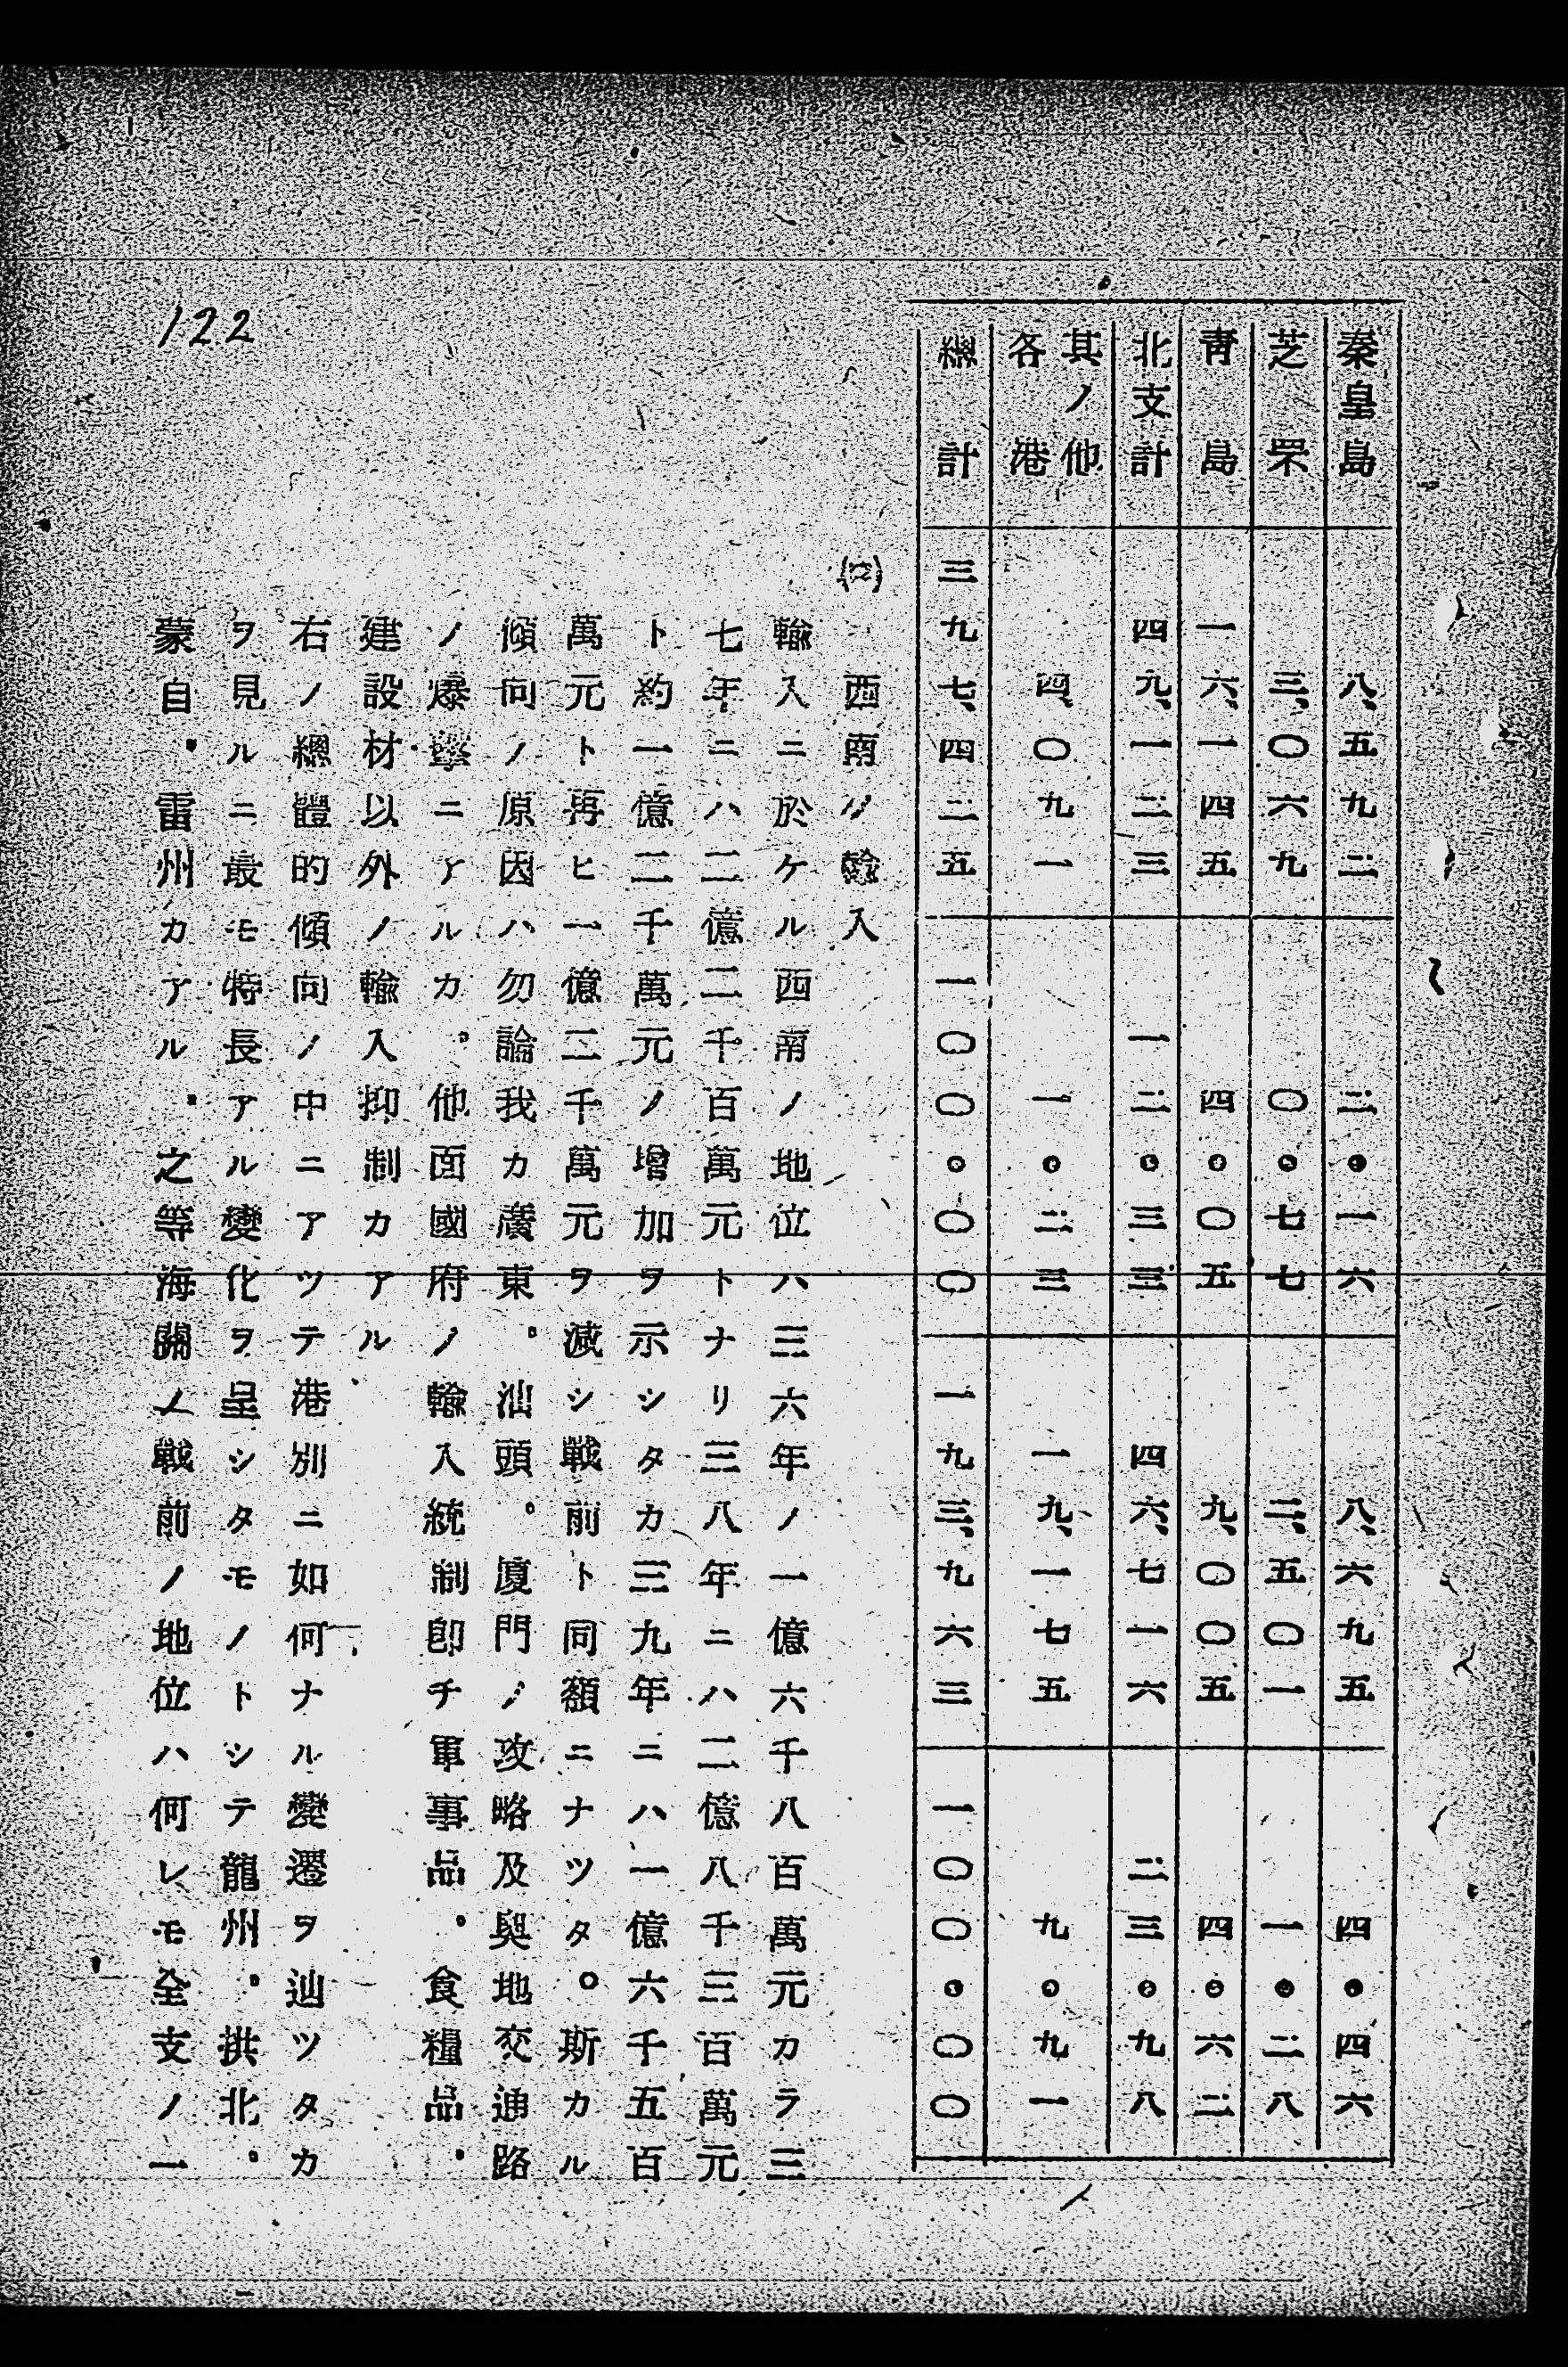 秦皇島 八、五九二 二・一六 八、六九五 四・四六
芝罘 三、〇六九 〇・七七 二、五〇一 一・二八
青島 一六、一四五 四・〇五 九、〇〇五 四・六二
北支計 四九、一二三 一二・三三 四六、七一六 二三・九八
其ノ他各港 四、〇九一 一・二三 一九、一七五 九・九一
總計 三九七、四二五 一〇〇・〇〇 一九三、九六三 一〇〇・〇〇
西南ノ輸入
輸入ニ於ケル西南ノ地位ハ三六年ノ一億六千八百萬元カラ三
七年ニハ二億二千百萬元トナリ三八年ニハ二億八千三百萬元
ト約一億二千萬元ノ增加ヲ示シタカ三九年ニハ一億六千五百
萬元ト再ヒ一億二千萬元ヲ減シ戰前ト同額ニナツタ。斯カル
傾向ノ原因ハ勿論我カ廣東。汕頭。廈門ノ攻略及奥地交通路
ノ爆擊ニアルカ。他面國府ノ輸入統制卽チ軍事品。食糧品。
建設材以外ノ輸入抑制カアル
右ノ總體的傾向ノ中ニアツテ港別ニ如何ナル變遷ヲ辿ツタカ
ヲ見ルニ最モ特長アル變化ヲ呈シタモノトシテ龍州。拱北。
蒙自。雷州カアル。之等海關ノ戰前ノ地位ハ何レモ全支ノ一
122